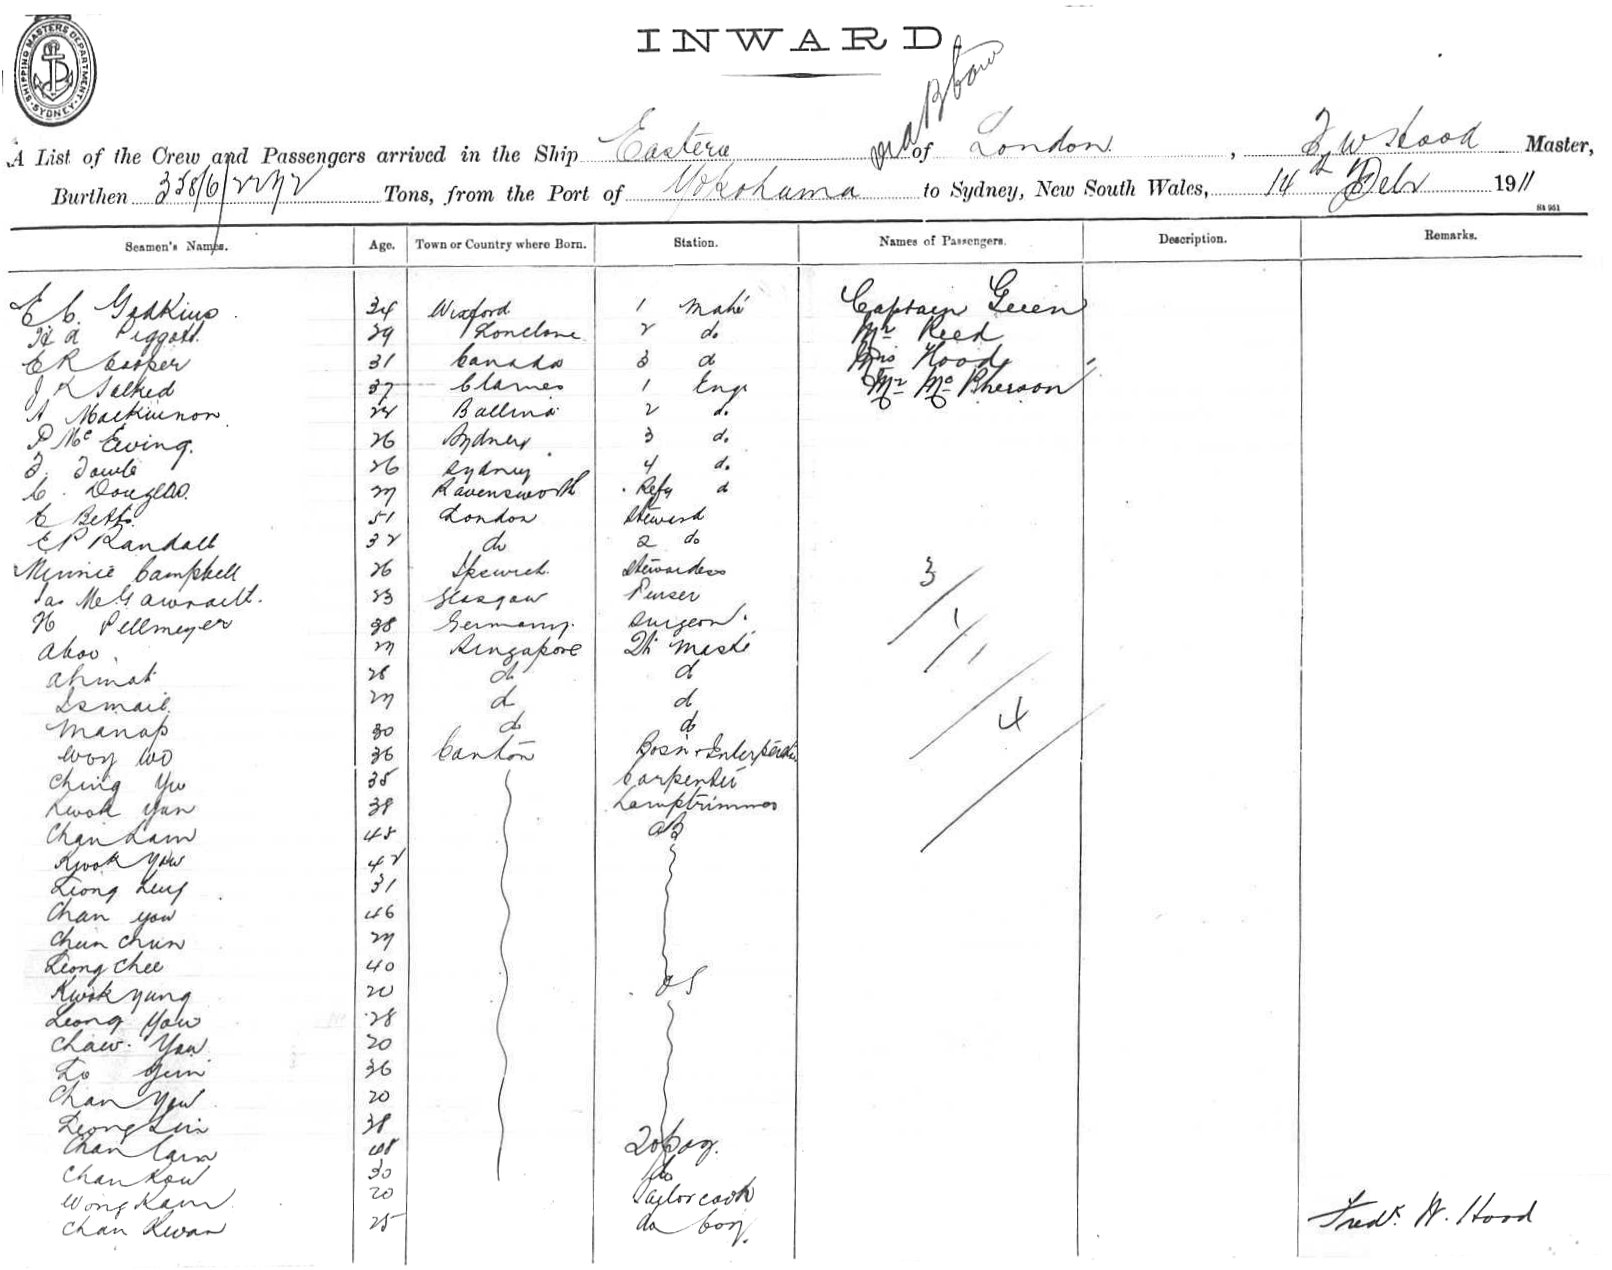 SHIPPING MASTERS DEPARTMENT · SYDNEY ·
INWARD
A List of the Crew and Passengers arrived in the Ship Eastern of London, F W Hood Master,
Burthen 3586/2272 Tons, from the Port of Yokohama to Sydney, New South Wales, 14th Feby 1911
Seamen's Names. Age. Town or Country where Born. Station. Names of Passengers. Description. Remarks.
34 Wexford 1 Mate Captain Green
Piggott 29 2 do Mr Reed
C R Cooper 31 Canada 3 do Mrs Hood
J R Salked 37 1 Engr Mr McPherson
A Mackinnon Ballina 2 do
P McEwing 26 Sydney 3 do
F Towle 26 Sydney 4 do
C. Douglas 27 Ravensworth Refg do
E Betts 51 London Steward
E P Randall 32 do 2 do
Minnie Campbell 26 Ipswich Stewardess
Jas 23 Glasgow Purser
H Pellmeyer 38 Germany Surgeon
Ahoo 27 Singapore Qtr Master
Ahmat 28 do do
Ismail 27 do do
Manap 30 do do
Woy Wo 36 Canton Bosn & Interpreter
Ching Yu 35 Carpenter
Kwok Yun 38 Lamptrimmer
Chan Lam 45 AB
Kwok Yow 42
Leong 31
Chan You 46
Chun Chun 27
Leong Chee 40
Kwok Yung 20 OS
Leong Yow 28
Chaw You 20
Lo 36
Chan Yow 20
Leong 38
Chan Cam 48 Topaz
Chan Kow 30 do
Wong Kam 20 Sailor cook
Chan Kwan 25 do boy
3
1/1
4
Fredk. W. Hood